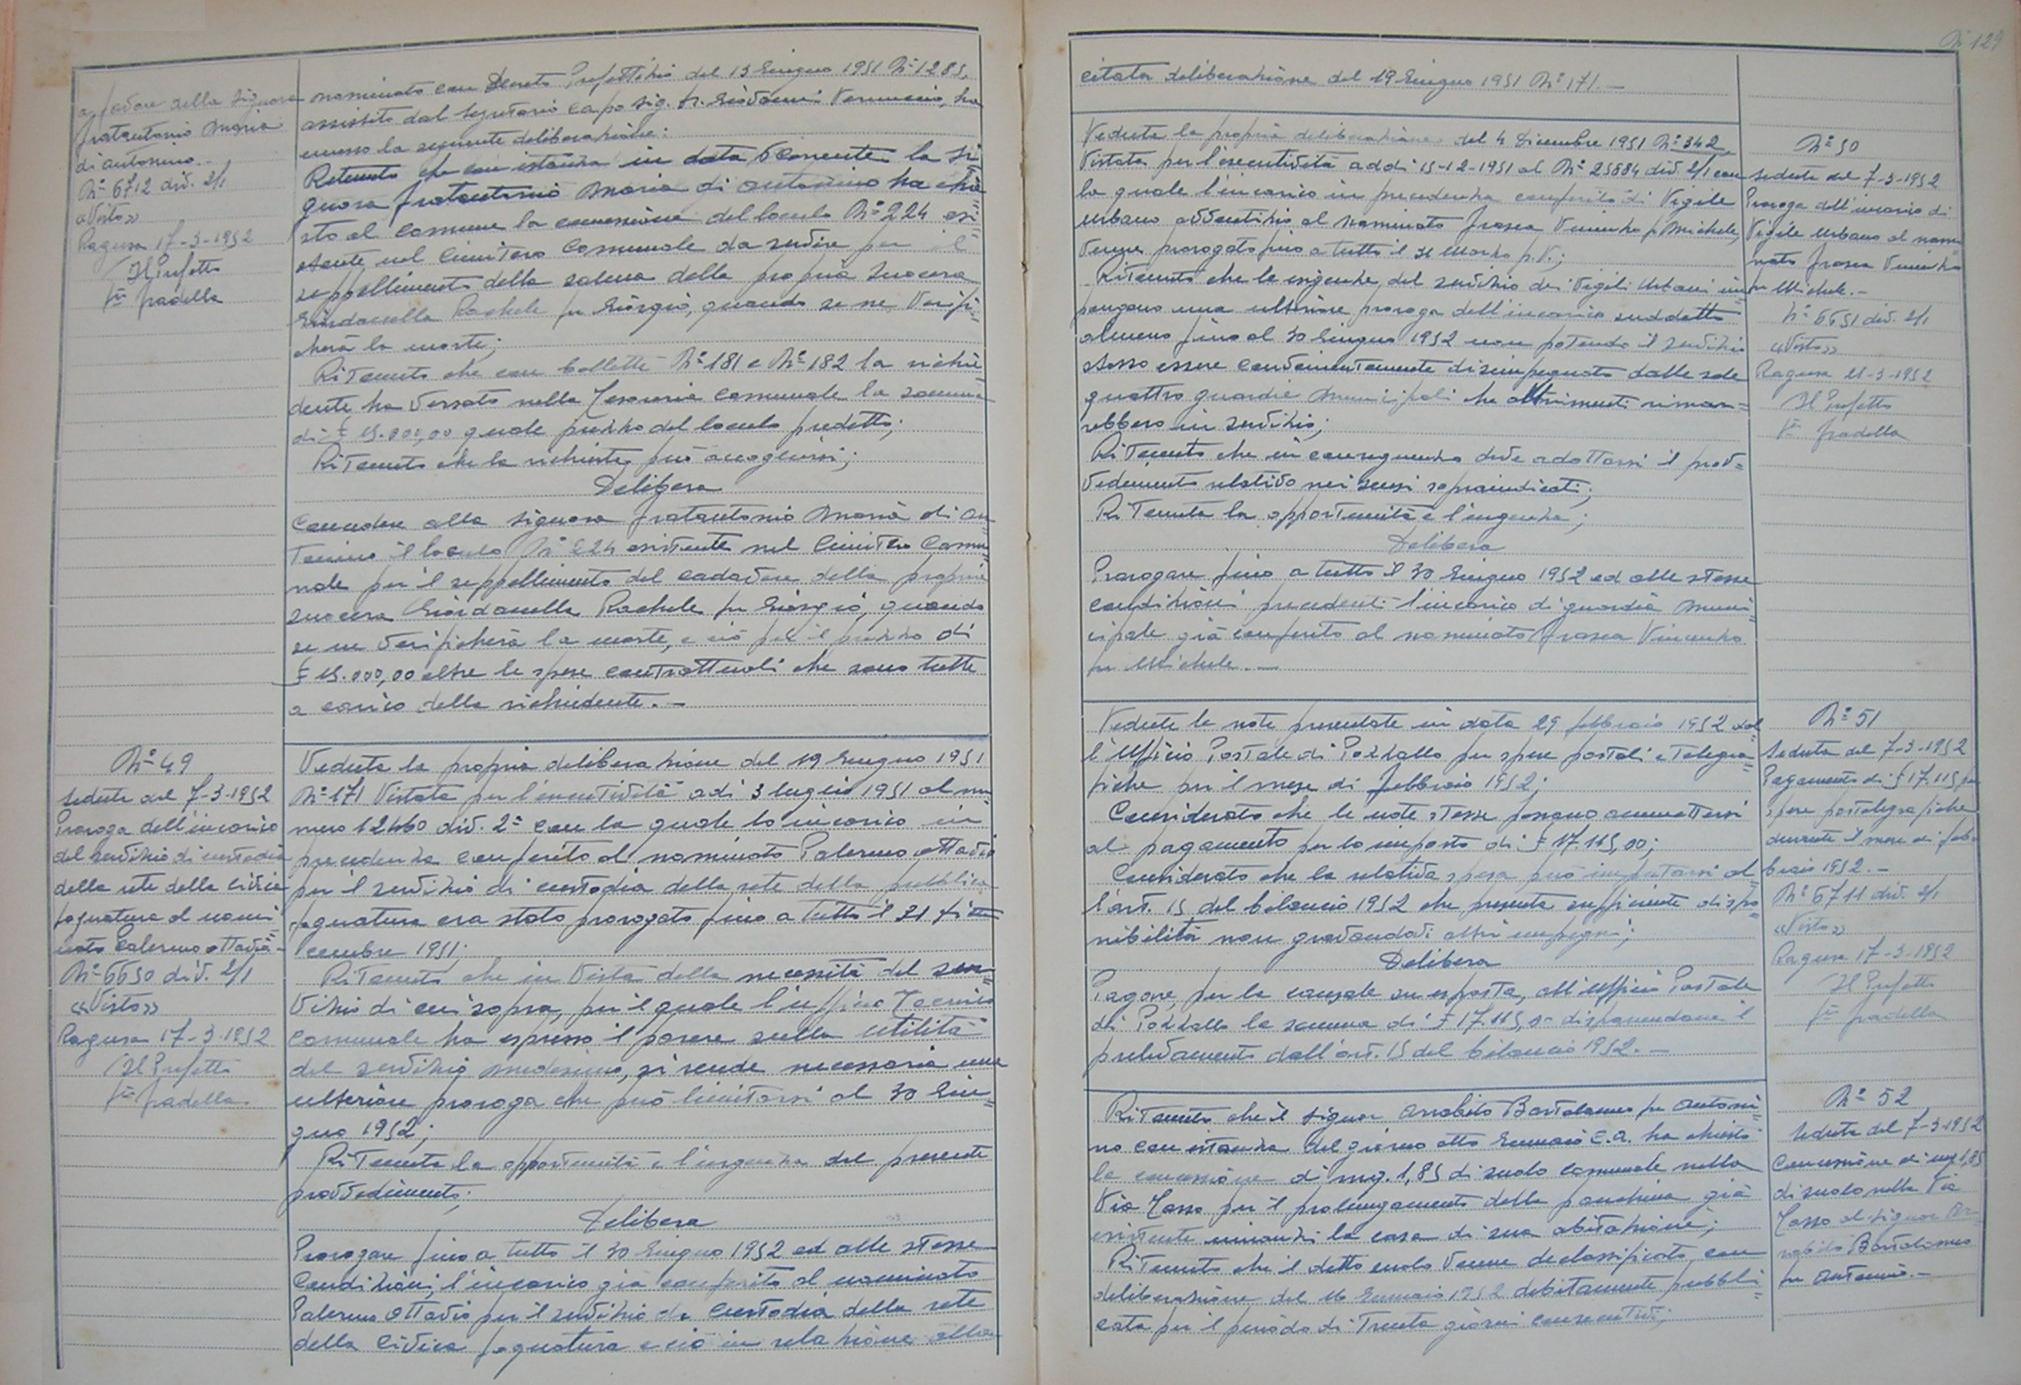 a favore della Signora
Fratantonio Maria
di Antonino.-
N° 6712 div. 2/1
«Visto»
Ragusa 17-3-1952
Il Prefetto
Fto Gradella
nominato con Decreto Prefettizio del 13 Giugno 1951 N° 1285,
assistito dal Segretario Capo Sig. Dr. Giovanni ha
emesso la seguente deliberazione:
Ritenuto che con istanza in data 6 corrente la Si=
gnora Fratantonio Maria di Antonino ha chie
sto al Comune la concessione del loculo N° 224 esi=
stente nel Cimitero Comunale da servire per il
seppellimento della salma della propria suocera
Giordanella Rachele fu Giorgio, quando se ne verifi=
cherà la morte;
Ritenuto che con bollette N° 181 e N° 182 la richie=
dente ha versato nella Tesoreria Comunale la somma
di £ 15.000,00 quale prezzo del loculo predetto;
Ritenuto che la richiesta può accogliersi;
Delibera
Concedere alla Signora Fratantonio Maria di An=
tonino il loculo N° 224 esistente nel Cimitero Comu=
nale per il seppellimento del cadavere della propria
suocera Giordanella Rachele fu Giorgio, quando
se ne verificherà la morte, e ciò per il prezzo di
£ 15.000,00 oltre le spese contrattuali che sono tutte
a carico della richiedente.-
N° 49
Seduta del 7-3-1952
Proroga dell'incarico
del servizio di custodia
della rete della civica
fognatura al nomi=
nato Palermo Ottavio-
N° 6650 div. 2/1
«Visto»
Ragusa 17-3-1952
Il Prefetto
Fto Gradella
Veduta la propria deliberazione del 19 Giugno 1951
N° 171 vistata per l'esecutività addì 3 luglio 1951 al nu=
mero 12460 div. 2a con la quale lo incarico in
precedenza conferito al nominato Palermo Ottavio
per il servizio di custodia della rete della pubblica
fognatura era stato prorogato fino a tutto il 31 Di=
cembre 1951;
Ritenuto che in vista della necessità del ser=
vizio di cui sopra, per il quale l'ufficio Tecnico
Comunale ha espresso il parere sulla utilità
del servizio medesimo, si rende necessaria una
ulteriore proroga che può limitarsi al 30 Giu=
gno 1952;
Ritenuta la opportunità e l'urgenza del presente
provvedimento;
Delibera
Prorogare fino a tutto il 30 Giugno 1952 ed alle stesse
condizioni, l'incarico già conferito al nominato
Palermo Ottavio per il servizio di custodia della rete
della civica fognatura e ciò in relazione alla
N° 129
citata deliberazione del 19 Giugno 1951 N° 171.-
Veduta la propria deliberazione del 4 Dicembre 1951 N° 342
vistata per l'esecutività addì 15-12-1951 al N° 25884 div. 2/1 con
la quale l'incarico in precedenza conferito di Vigile
Urbano avventizio al nominato Frasca Vincenzo fu Michele,
venne prorogato fino a tutto il 31 Marzo p.v.;
Ritenuto che le esigenze del servizio dei Vigili Urbani im=
pongono una ulteriore proroga dell'incarico suddetto
almeno fino al 30 Giugno 1952 non potendo il servizio
stesso essere convenientemente disimpegnato dalle sole
quattro guardie Municipali che altrimenti rimar=
rebbero in servizio;
Ritenuto che in conseguenza deve adottarsi il prov=
vedimento relativo nei sensi sopraindicati;
Ritenuta la opportunità e l'urgenza;
Delibera
Prorogare fino a tutto il 30 Giugno 1952 ed alle stesse
condizioni precedenti l'incarico di guardia Muni
cipale già conferito al nominato Frasca Vincenzo
fu Michele.-
N° 50
Seduta del 7-3-1952
Proroga dell'incarico di
Vigile Urbano al nomi
nato Frasca Vincenzo
fu Michele.-
N° 6651 div. 2/1
«Visto»
Ragusa 21-3-1952
Il Prefetto
Fto Gradella
Vedute le note presentate in data 29 febbraio 1952 dal
l'Ufficio Postale di Pozzallo per spese postali e telegra=
fiche per il mese di febbraio 1952;
Considerato che le note stesse possono ammettersi
al pagamento per lo importo di £ 17.115,00;
Considerato che la relativa spesa può imputarsi al=
l'art. 15 del bilancio 1952 che presenta sufficiente dispo=
nibilità non gravandovi altri impegni;
Delibera
Pagare, per la causale su esposta, all'Ufficio Postale
di Pozzallo la somma di £ 17.115,00 disponendone il
prelevamento dall'art. 15 del bilancio 1952.-
N° 51
Seduta del 7-3-1952
Pagamento di £ 17.115 per
spese postelegrafiche
durante il mese di feb=
braio 1952.-
N° 6711 div. 2/1
«Visto»
Ragusa 17-3-1952
Il Prefetto
Fto Gradella
Ritenuto che il Signor Arrabito Bartolomeo fu Antoni=
no con istanza del giorno otto Gennaio c.a. ha chiesto
la concessione di mq. 1,85 di suolo comunale nella
Via Tasso per il prolungamento della panchina già
esistente innanzi la casa di sua abitazione;
Ritenuto che il detto suolo venne declassificato con
deliberazione del 16 Gennaio 1952 debitamente pubbli=
cata per il periodo di trenta giorni consecutivi;
N° 52
Seduta del 7-3-1952
Concessione di mq 1,85
di suolo nella Via
Tasso al Signor Ar=
rabito Bartolomeo
fu Antonino.-